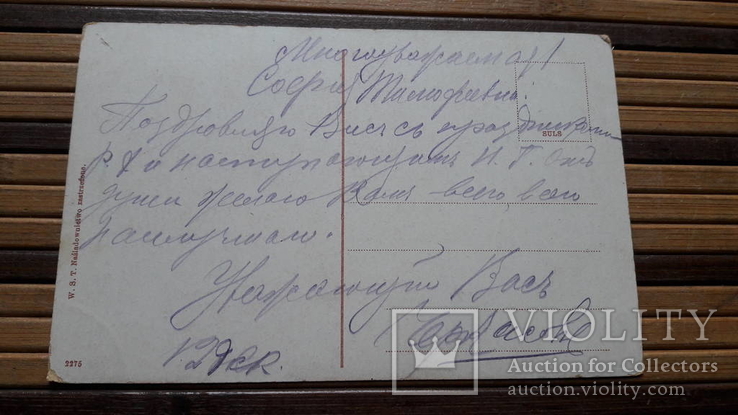 Многоуважаемая!
София Тимофеевна!
Поздровляю Васъ съ праздникомъ
Р Х и наступающимъ Н. Г. отъ
души желаю Вамъ всего всего
Уважающій Васъ
Дек.
SULS
W. S. T. Naśladownictwo zastrzeżone.
2275
VIOLITY
Auction for Collectors
auction.violity.com